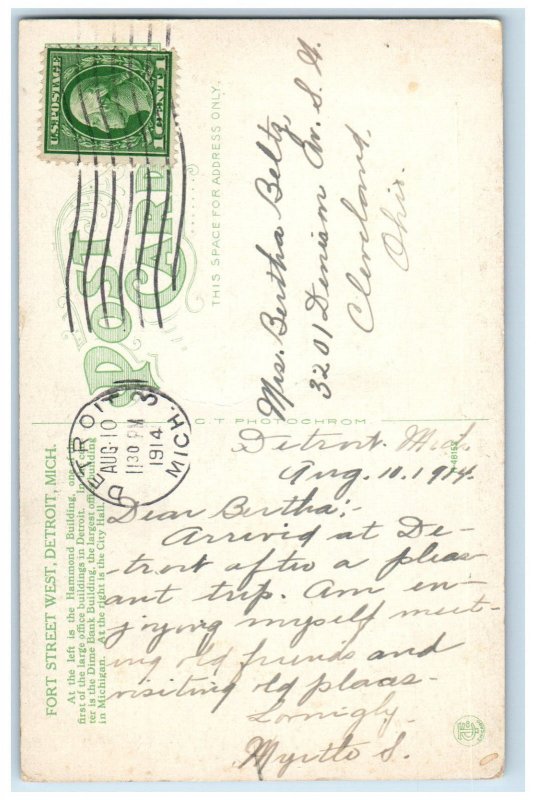 U.S. POSTAGE
1 CENT 1
POST
CARD
THIS SPACE FOR ADDRESS ONLY.
DETROIT
AUG 10
1130 PM
1914
MICH.
3
C. T. PHOTOCHROM
FORT STREET WEST, DETROIT, MICH.
At the left is the Hammond Building, one
first of the large office buildings in Detroit. In
ter is the Dime Bank Building, the largest office building
in Michigan. At the right is the City Hall.
Mrs. Bertha Beltz
3201 Denison Av. S.W.
Cleveland,
Ohio.
Detroit. Mich.
Aug. 10. 1914.
Dear Bertha;-
Arrivid at De-
troit after a pleas
ant trip. Am en-
joying myself meet-
ing old friends and
visiting old places-
Lovingly.
Myrtle S.